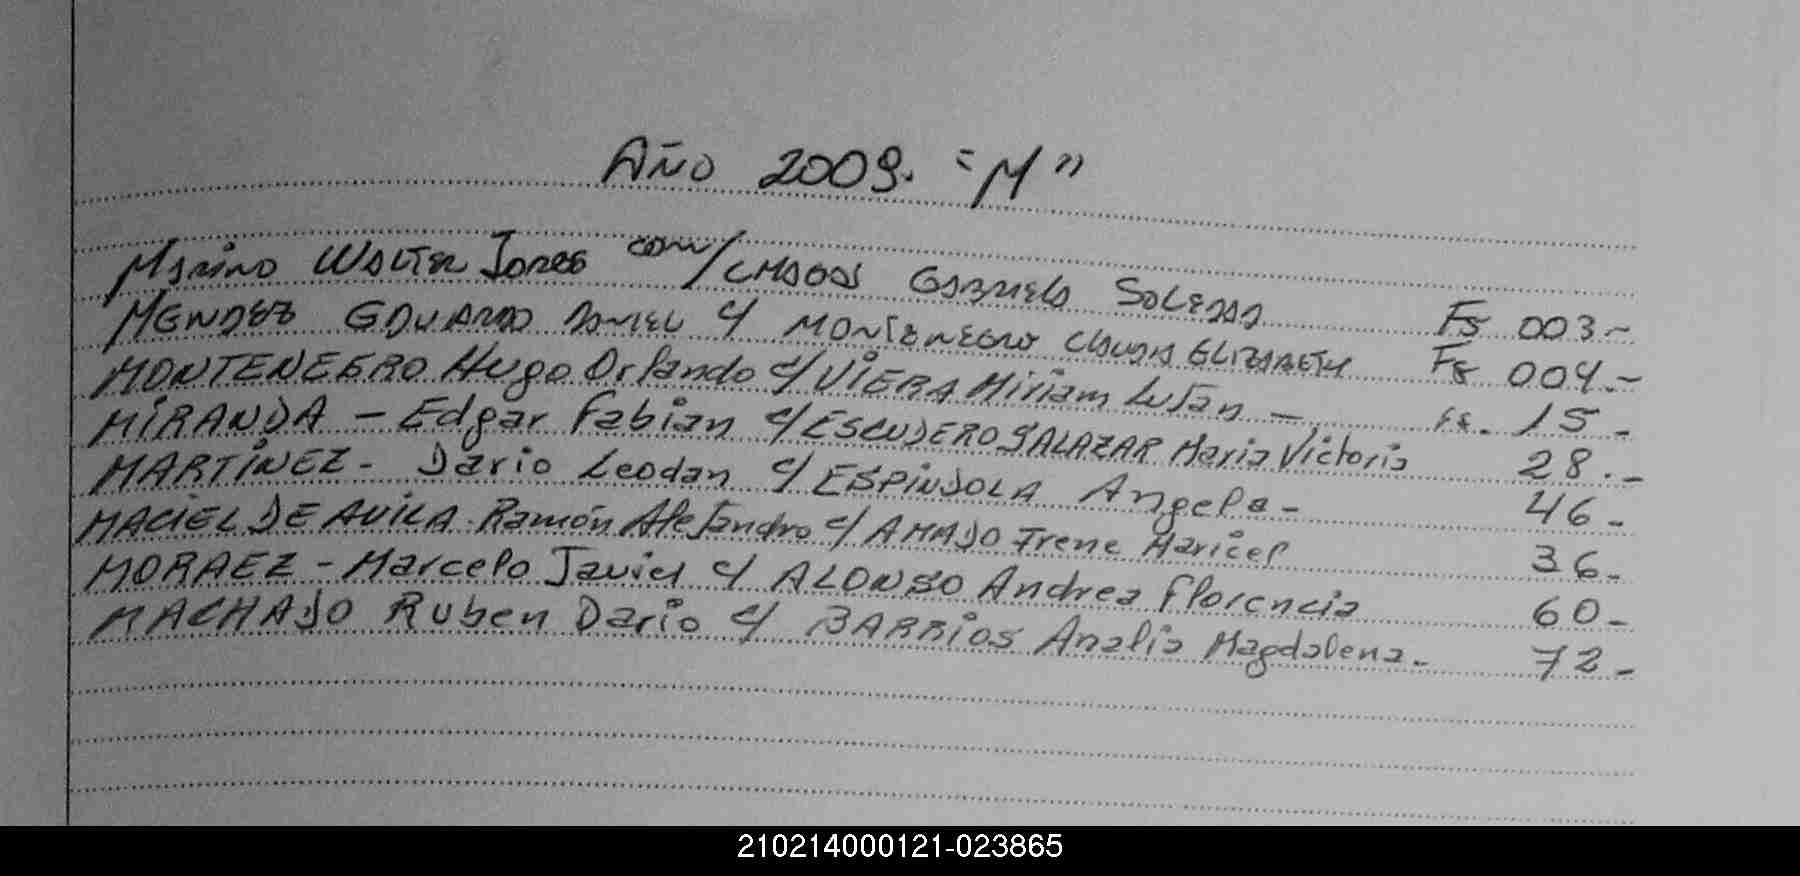 AÑO 2009. "M"
Marino Walter Jones con/ Gabriela Soledad Fs 003-
MENDEZ EDUARDO DANIEL c/ MONTENEGRO CLAUDIA ELIZABETH Fs 004.-
MONTENEGRO Hugo Orlando c/ VIERA Miriam Luján - Fs. 15-
MIRANDA - Edgar Fabian c/ ESCUDERO SALAZAR Maria Victoria 28.-
MARTÍNEZ - Dario Leodan c/ ESPINDOLA Angela - 46-
MACIEL DE AVILA - Ramón Alejandro c/ AMADO Irene Maricel 36-
MORAEZ - Marcelo Javier c/ ALONSO Andrea Florencia 60-
MACHADO Ruben Dario c/ BARRIOS Analia Magdalena - 72-
210214000121-023865